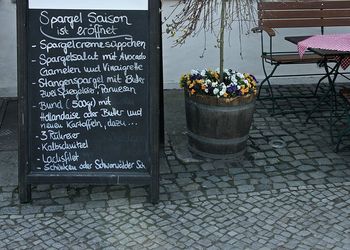 Spargel Saison
ist eröffnet
- Spargelcremesüppchen
- Spargelsalat mit Avocado
Garnelen und Vinaigrette
- Stangenspargel mit Butter
zwei Spiegeleier, Parmesan
- Bund (500gr) mit
Hollandaise oder Butter und
neuen Kartoffeln, dazu...
- 3 Rühreier
- Kalbschnitzel
- Lachsfilet
- Schinken oder Schwarzwälder Sch